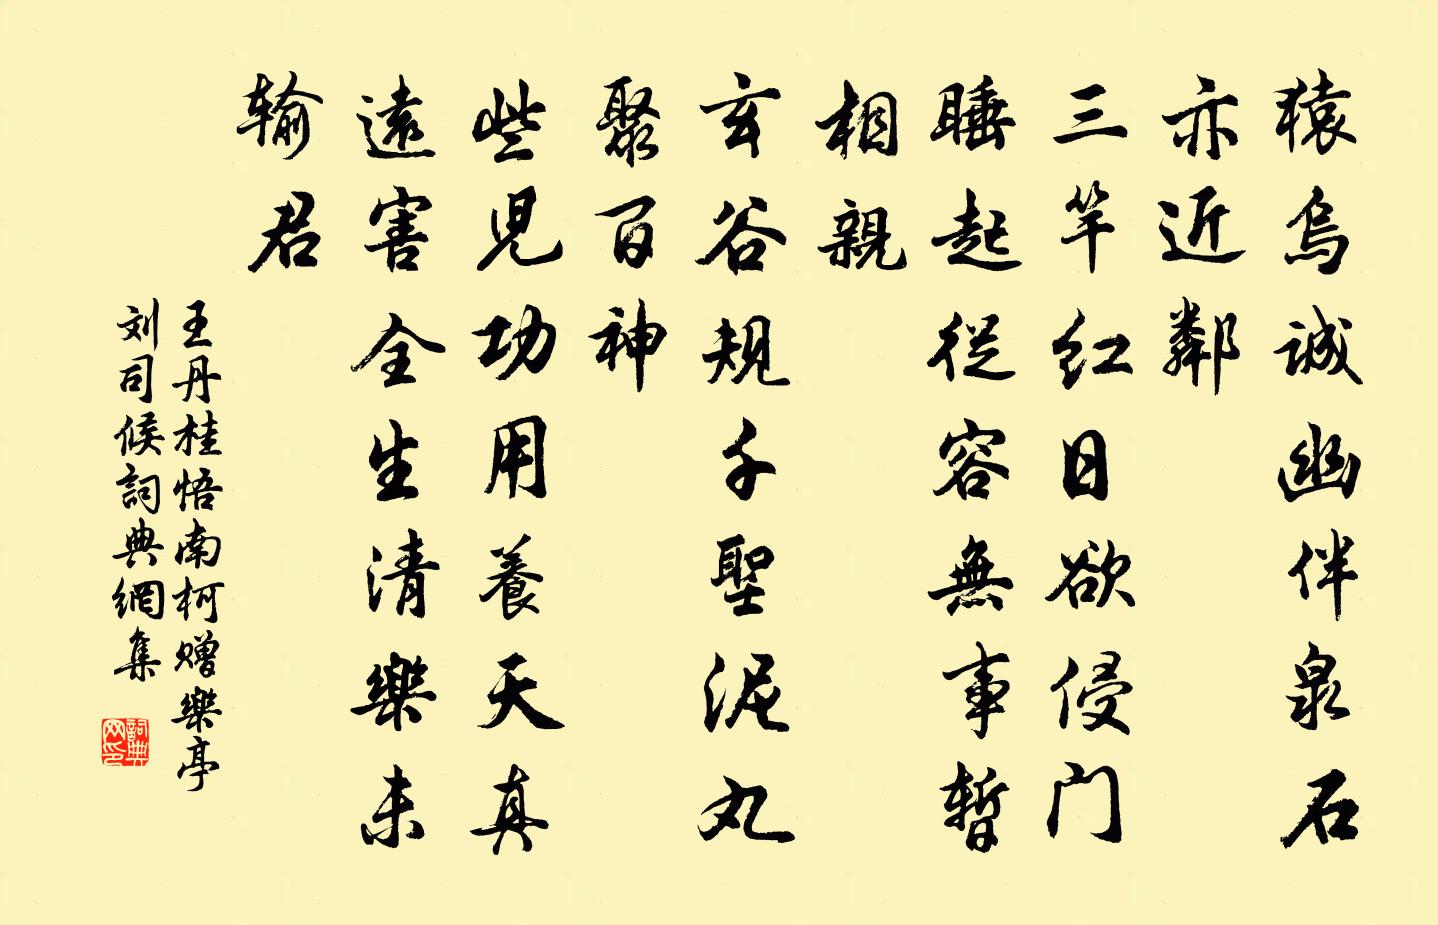 猿鳥誠幽伴泉石
亦近鄰
三竿红日欲侵门
睡起從容無事暫
相親
玄谷規千聖泥丸
聚百神
些児功用養天真
遠害全生清樂未
输君
王丹桂悟南柯赠樂亭
刘司候詞典網集
詞典
网印